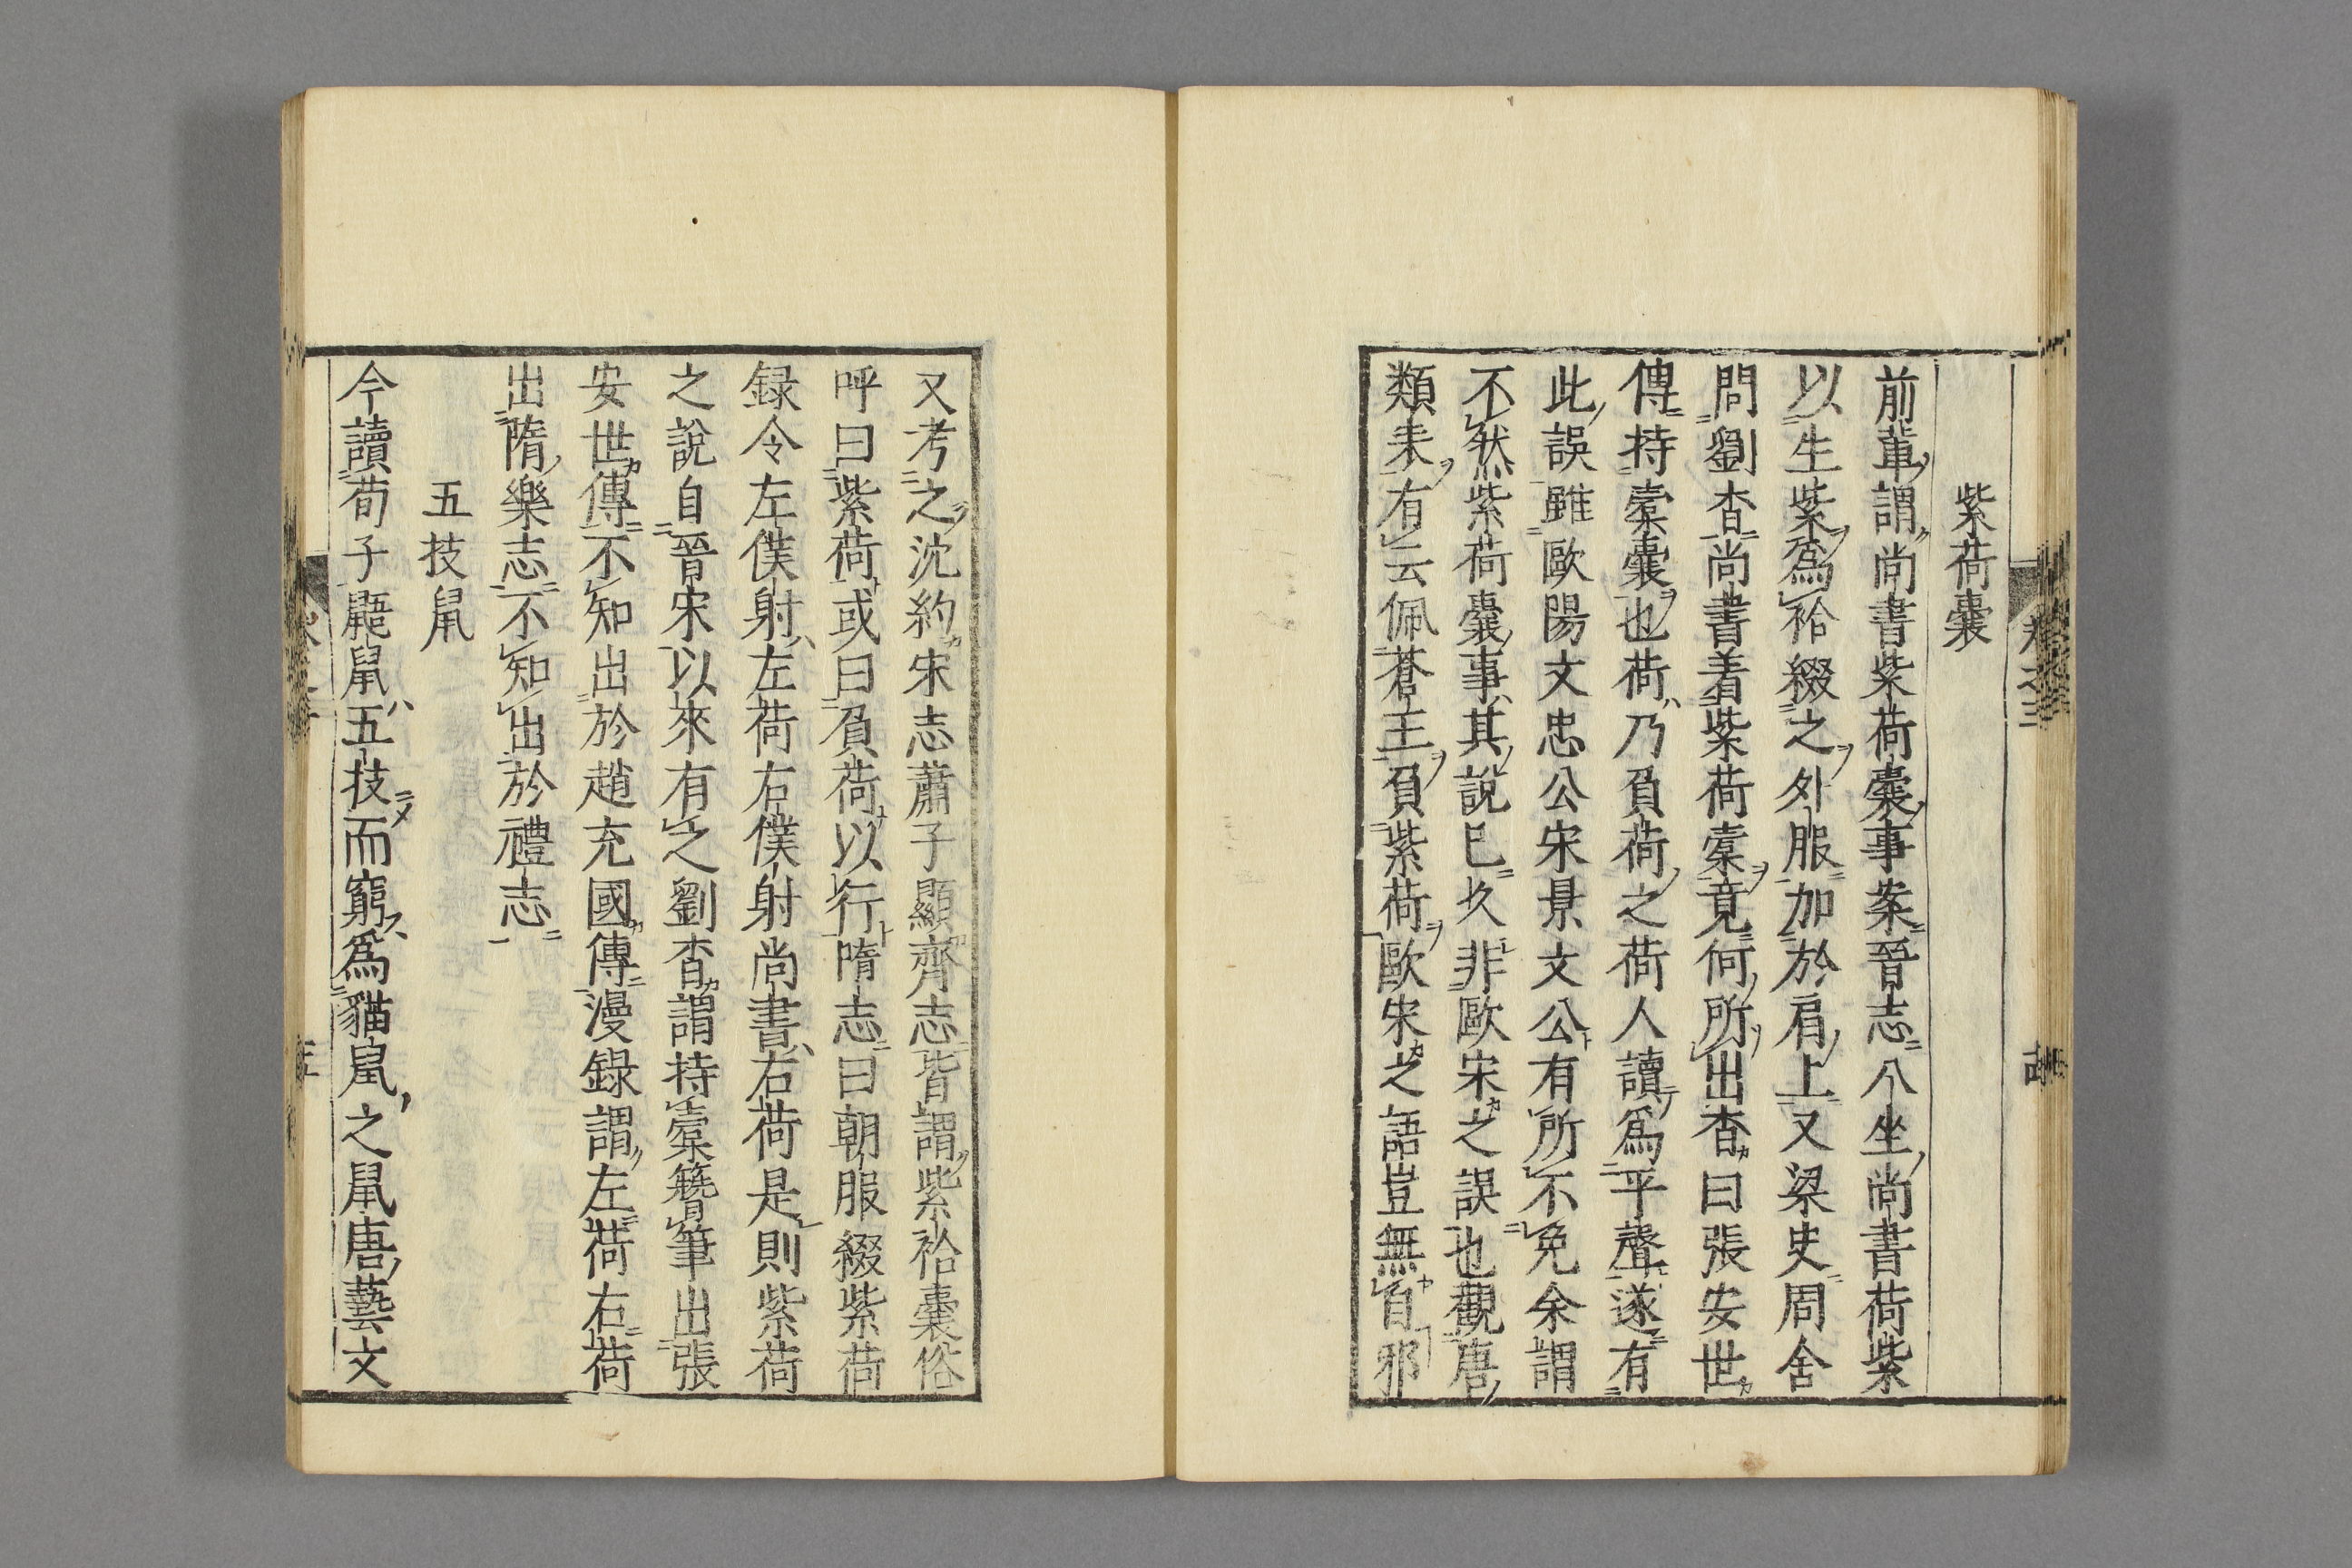 紫荷囊
前輩謂尚書紫荷囊事案晉志八坐尚書荷紫
以生紫爲袷綴之外服加於肩上又梁史周舍
問劉杳尚書着紫荷橐竟何所出杳曰張安世
傳持橐囊也荷乃負荷之荷人讀爲平聲遂有
此誤雖歐陽文忠公宋景文公有所不免余謂
不然紫荷囊事其說已久非歐宋之誤也觀唐
類表有云佩蒼玉負紫荷歐宋之語豈無自邪
又考之沈約宋志蕭子顯齊志皆謂紫袷囊俗
呼曰紫荷或曰負荷以行隋志曰朝服綴紫荷
録令左僕射左荷右僕射尚書右荷是則紫荷
之說自晉宋以來有之劉杳謂持橐簪筆出張
安世傳不知出於趙充國傳漫録謂左荷右荷
出隋樂志不知出於禮志
五技鼠
今讀荀子鼯鼠五技而窮爲貓鼠之鼠唐藝文